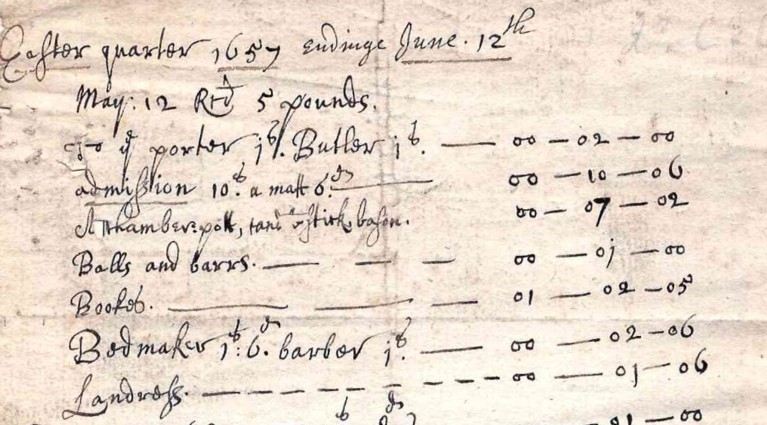 Easter quarter 1657 Endinge June. 12th
May: 12 Red 5 pounds.
To ye porter 1s. Butler 1s. — 00 — 02 — 00
admission 10s a matt 6d — 00 — 10 — 06
A Chamberpott, candlestick, bason. 00 — 07 — 02
Balls and barrs. — — — 00 — 01 — 00
Bookes. — — — 01 — 02 — 05
Bedmaker 1s: 6d. barber 1s. — 00 — 02 — 06
Landress. — — — — — — — — 00 — 01 — 06
s d 01 — 00